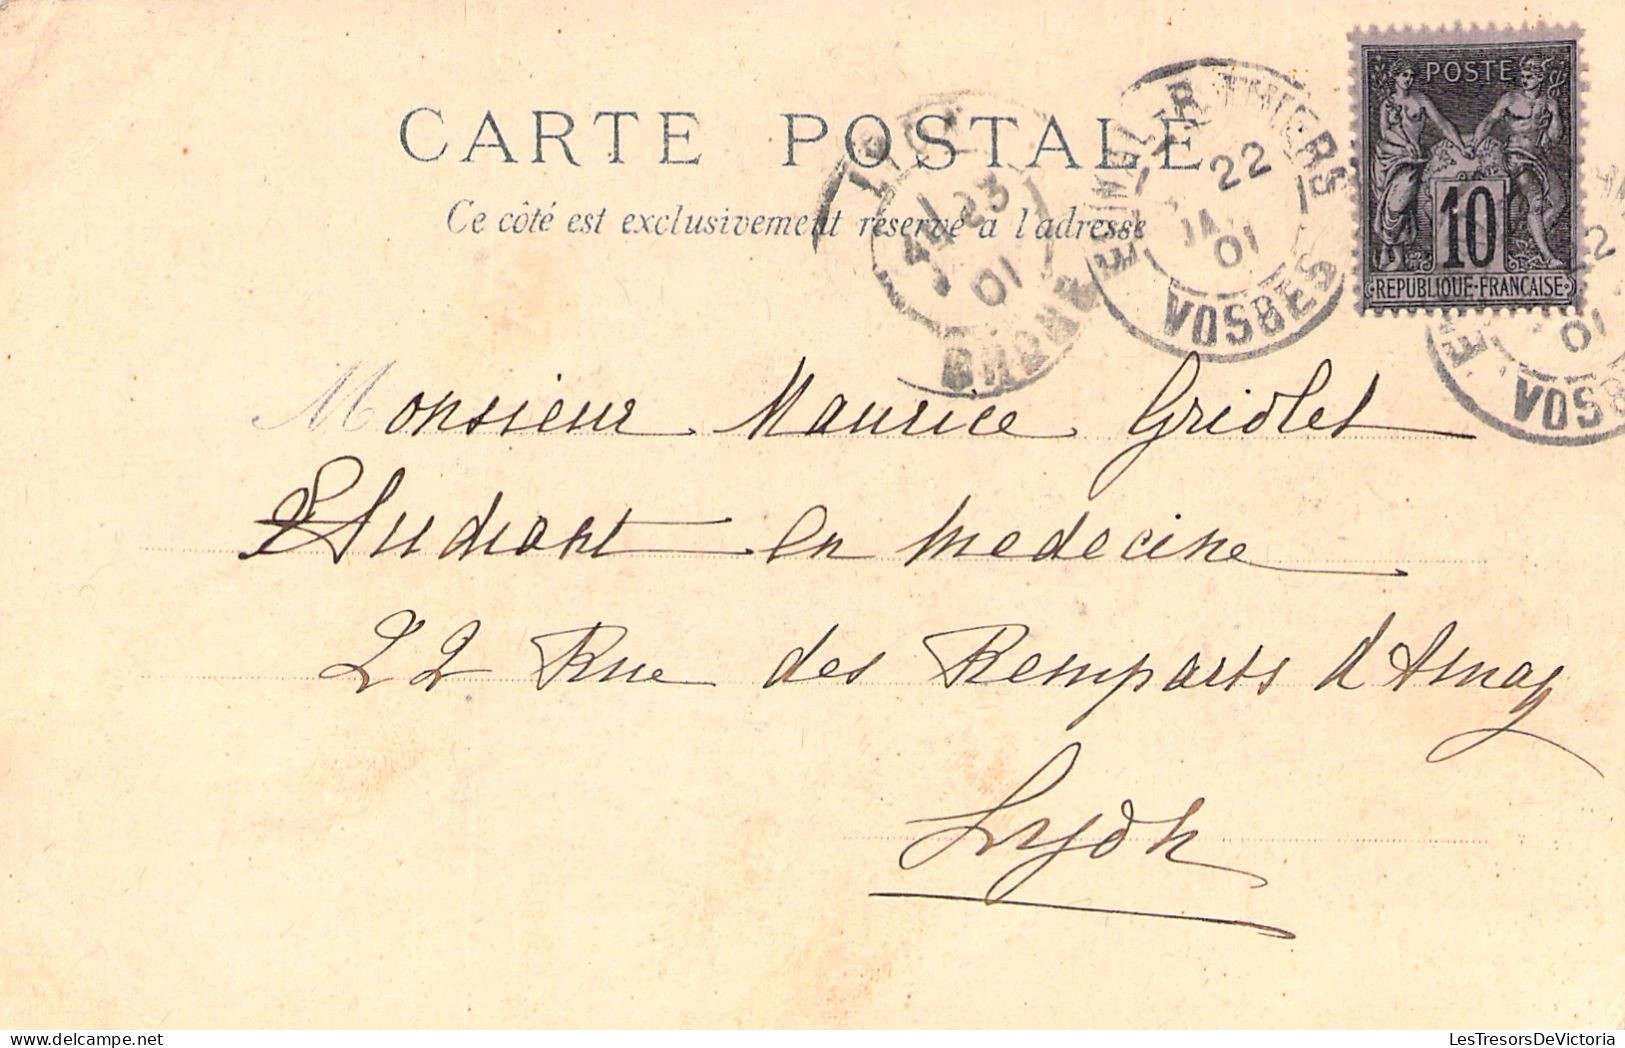 CARTE POSTALE
Ce côté est exclusivement réservé à l'adresse
POSTE
10
REPUBLIQUE·FRANÇAISE
EPINAL R. THIERS
22
JA
01
VOSGES
LYON
23
01
RHONE
2
01
VOS
Monsieur Maurice Griolet
Etudiant en Medecine
22 Rue des Remparts d'Ainay
Lyon
LesTresorsDeVictoria - Delcampe.net